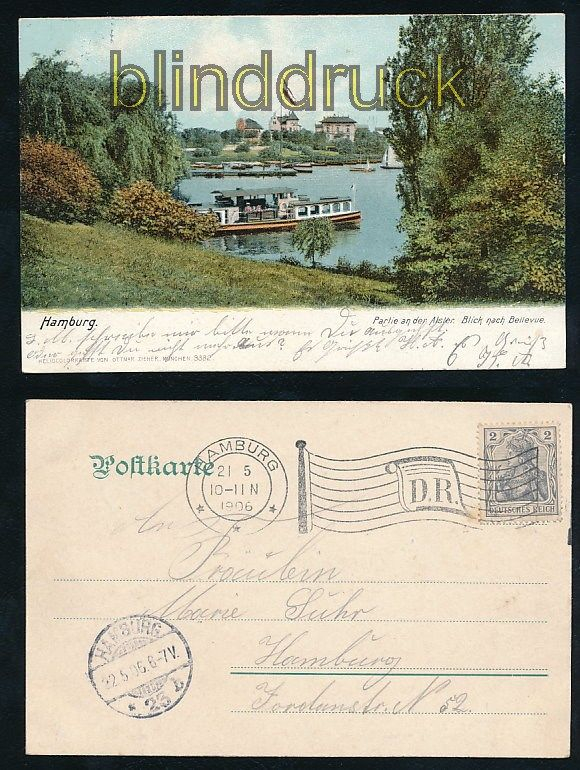 blinddruck
Hamburg. Partie an der Alster. Blick nach Bellevue.
schreibe mir bitte wann Du
Du nicht Gruß
HELIOCOLORKARTE VON OTTMAR ZIEHER, MÜNCHEN. 3382.
Postkarte
HAMBURG
21 5
10-11 N
1906
D.R.
2 2
DEUTSCHES REICH
An
Fräulein
Marie Suhr
Hamburg
Jordanstr. No 52.
HAMBURG
22.5.06.6-7V.
* 23 b